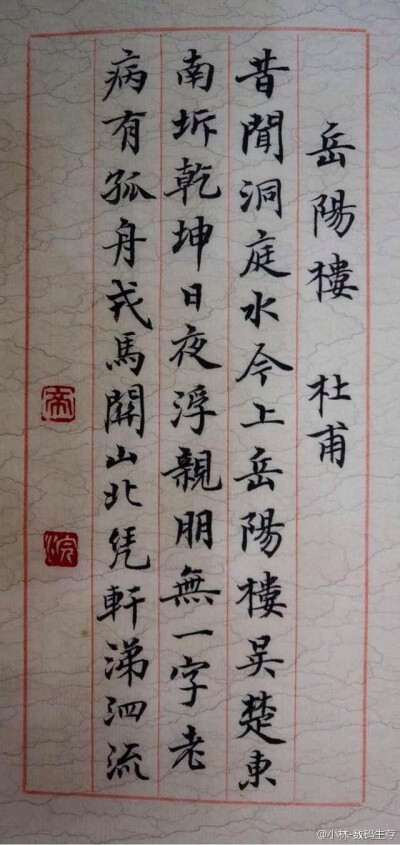 岳陽樓 杜甫
昔聞洞庭水今上岳陽樓吴楚東
南坼乾坤日夜浮親朋無一字老
病有孤舟戎馬關山北凭軒涕泗流
@小林-数码生存